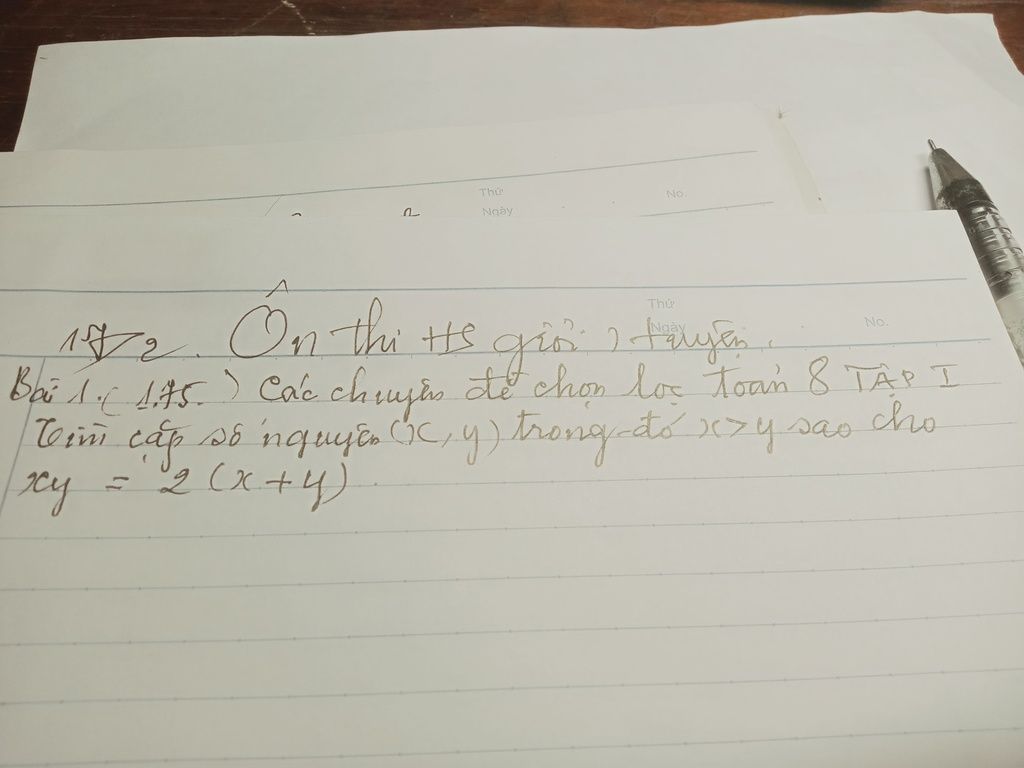 Thứ
No.
Ngày
Thứ
Ngày
No.
Ôn thi HS giỏi, tuyển.
Bài 1. (1.75.) Các chuyên đề chọn lọc toán 8 TẬP I
Tìm cặp số nguyên (x, y) trong đó x > y sao cho
xy = 2 (x + y)